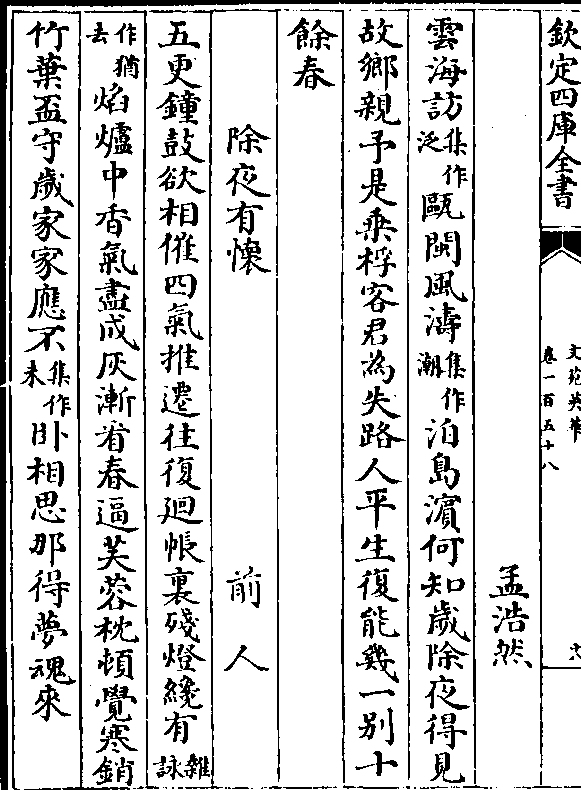 欽定四庫全書
文苑英華
卷一百五十八
孟浩然
雲海訪集作泛甌閩風濤集作潮泊島濵何知歲除夜得見
故鄉親予是乗桴客君為失路人平生復能幾一别十
餘春
除夜有懷
前人
五更鐘鼓欲相催四氣推遷往復廻帳裏殘燈纔有雜詠
作猶去焰爐中香氣盡成灰漸看春逼芙蓉枕頓覺寒銷
竹葉盃守歲家家應不集作未卧相思那得夢魂來